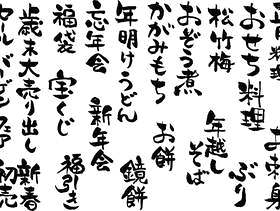 月料理
お刺身
おせち料理
ぶり
松竹梅
年越し
そば
おぞう煮
かがみもち
お餅
年明けうどん
鏡餅
忘年会
新年会
福袋
宝くじ
福引き
歳末大売り出し
新春
セール
バーゲン
フェア
初売